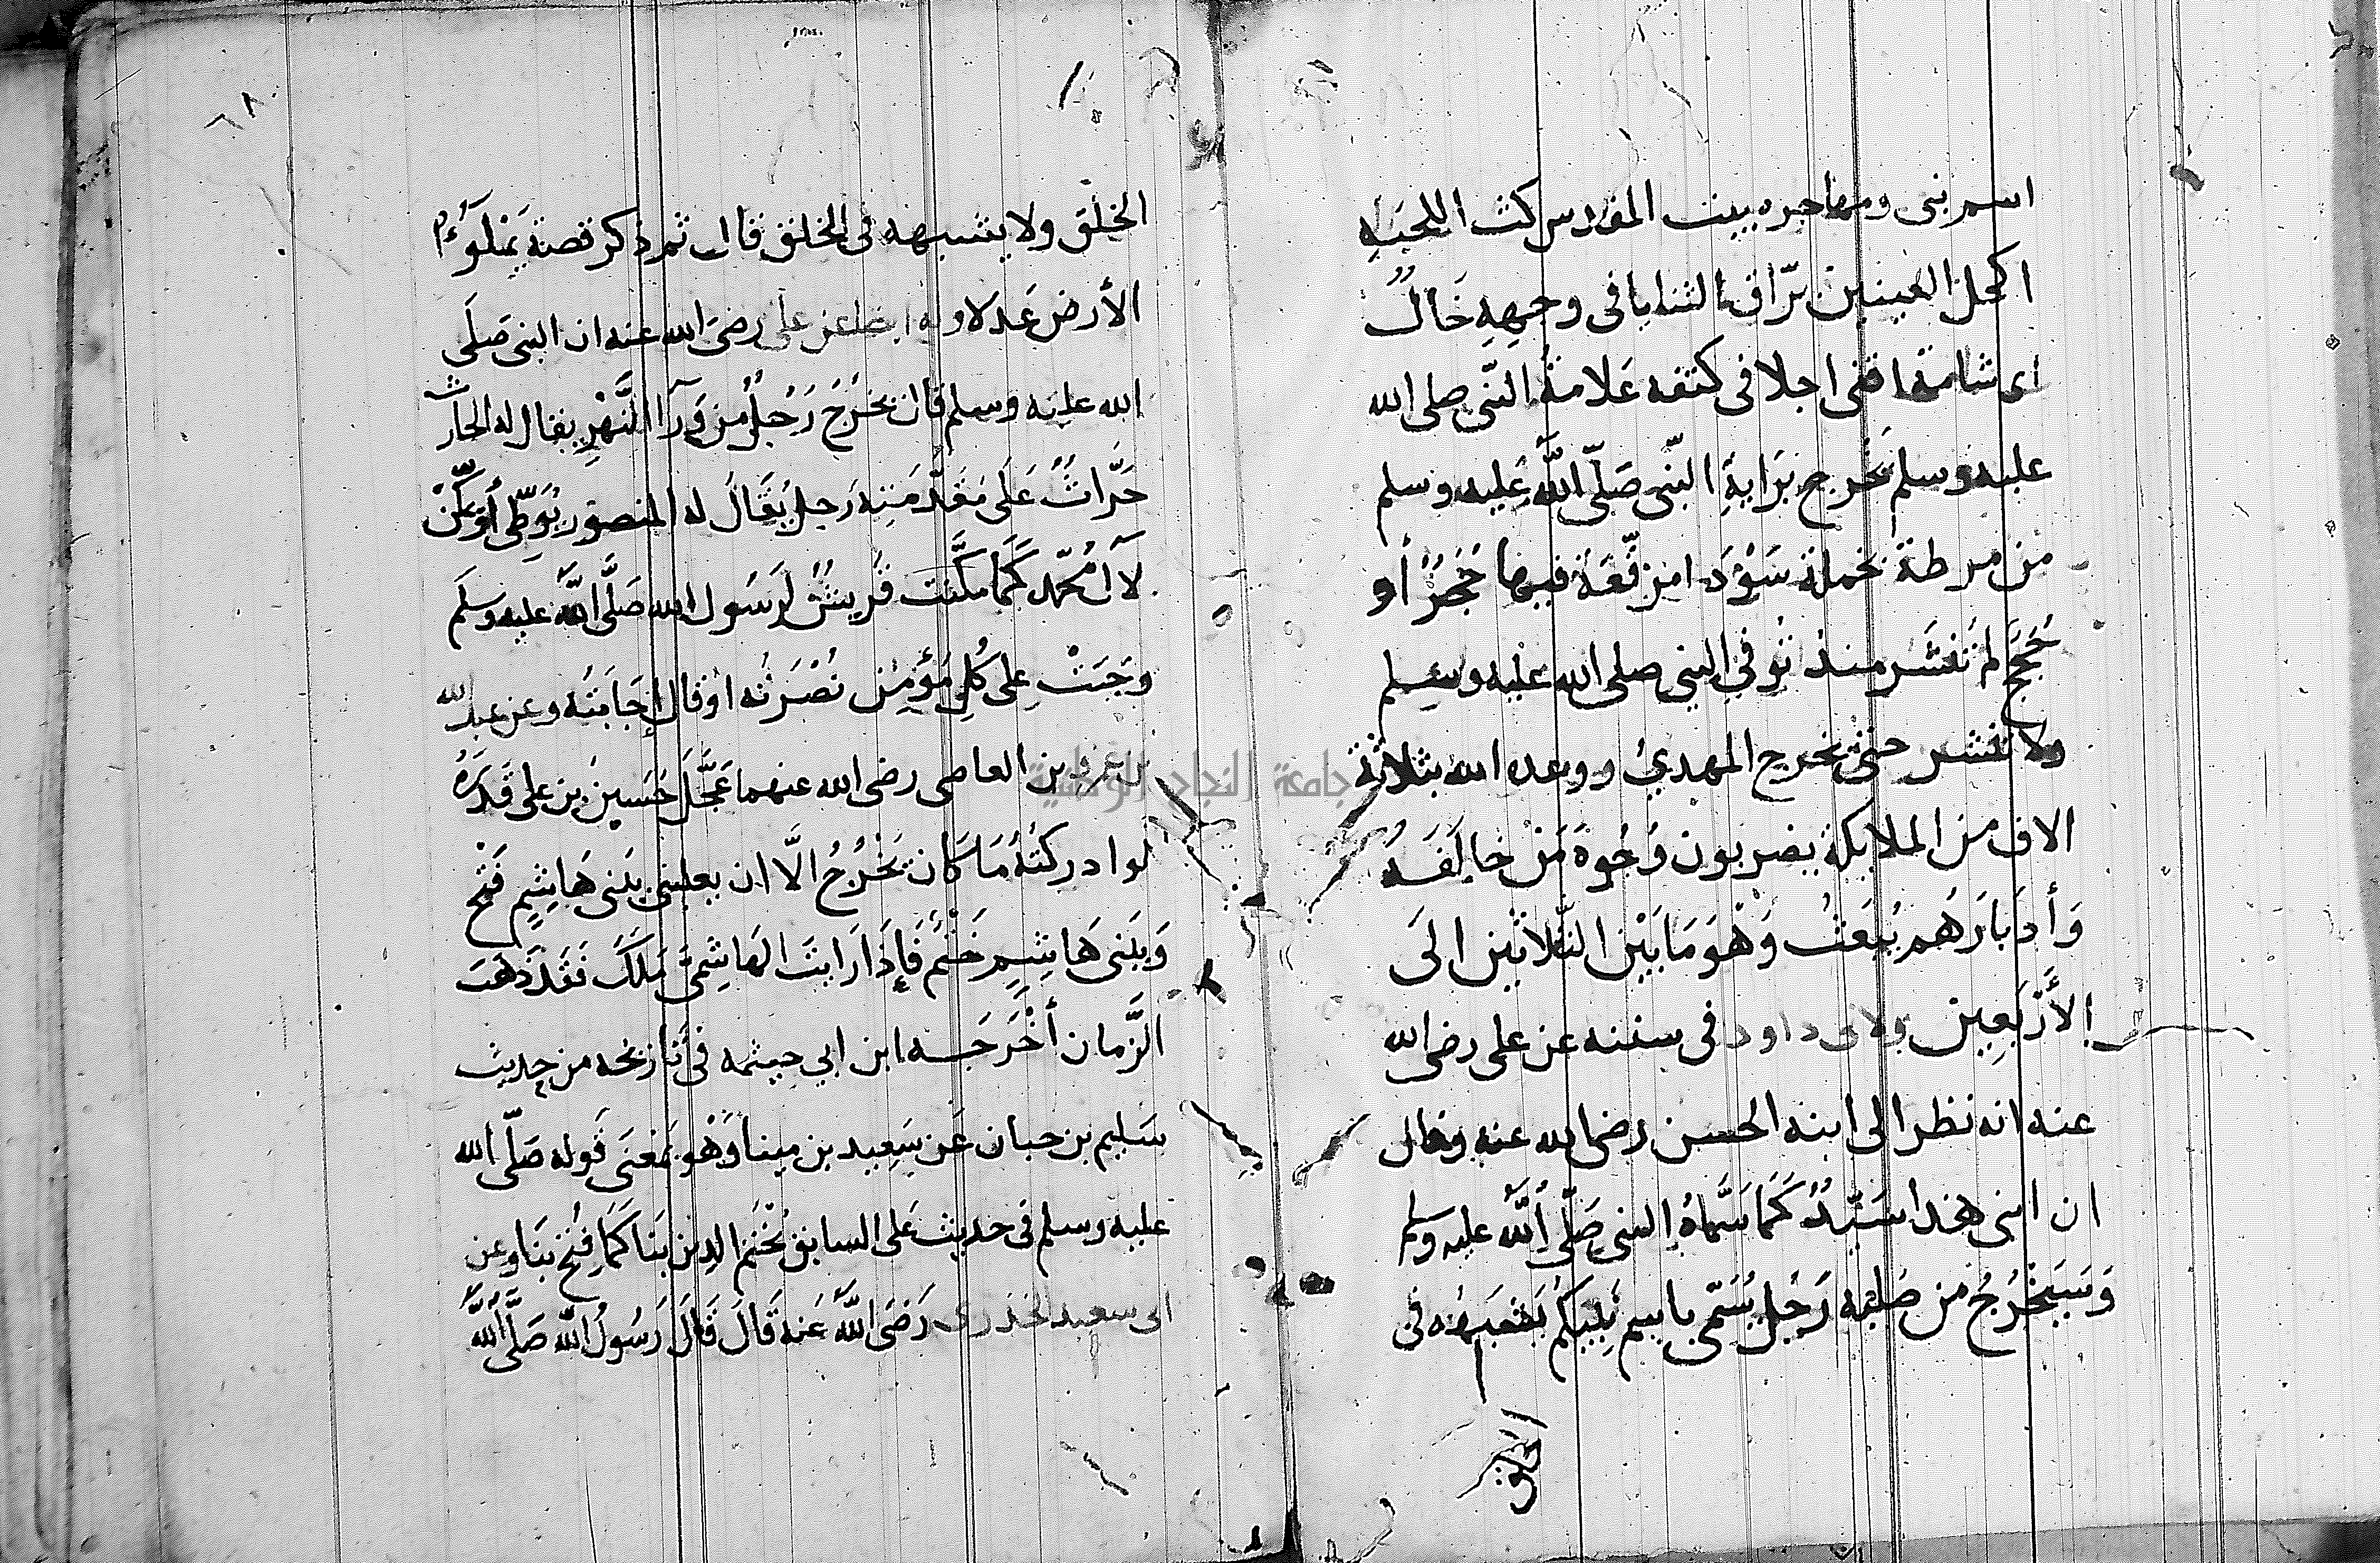 اسم نبى ومهاجره ببيت المقدس كث اللحية
اكحل العينين برّاق الثنايا فى وجهِهِ خَالٌ
اى شامة اقنى اجلا فى كتفه عَلامةُ النّبى صلى الله
عليه وسلم يَخْرج بَرايةِ النّبى صَلّى اللَّه عَليه وسلم
من مرطة مخملة سَوْدَا مربّعَة فيها حُجَرٌ أو
حُجَجٌ لم تنْشَر منذ تُوفي النبي صلى الله عليه وسلم
ولا تنشر حتى يخرج المهديُ ووعده الله بثلاثة
الاف من الملايكة يضربون وُجُوهَ مَنْ خالَفَهُ
وَأدَبَارَهُم يُبعَثُ وَهْوَ مَا بَيْن الثّلاثين الىَ
الأَرْبَعِين ولابى داود فى سننه عن على رضى الله
عنه انه نظر الى ابنه الحسن رضى الله عنه وقال
ان ابنى هذا سَيّدٌ كَمَا سَمَّاهُ النبي صَلّى اللَّه عليه وسلم
وَسَيَخْرُجُ من صُلبه رَجُل يُسَمّى باسم نَبِيكُم يُشْبِهُه فى
الخلق
٦٨
الخُلُق ولا يشبهه فى الخلق قال ثم ذكر قصة يَمْلَؤُا
الأرض عَدلا وله ايضا عن على رضىَ الله عنه ان النبى صَلَى
الله عليه وسلم قال يَخْرُجُ رَجُلٌ من وَرَآ النَّهْرِ يقال له الحارث
حَرَّاثٌ عَلى مُقَدّمَتِه رَجل يُقَالُ له المنصور يُوَطّى أوْ يمَكِّنْ
لآل مُحَمّد كَمَا مَكَّنت قُريْشٌ لِرَسُول الله صَلَّى اللَّه عليه وسَلم
وجَبَتْ عِلى كُلِ مُؤمِن نُصْرَتُه اوْ قال إجَابَتُه وعن عبد الله
بن عمرو بن العاصى رضى الله عنهما عَجَّلَ حُسَين بن على قَدَرَهُ
لوادركتُهُ مَا كَان يَخْرُجُ الّا ان يغلبنى بَنى هَاشِمٍ فَتْحٌ
وَببَنى هَاشِمٍ خَتْمٌ فَإِذَا رَايتَ الهَاشِمىَّ مَلَكَ فَقَدْ ذَهَبَ
الزَّمان أخْرَجَه ابن ابي خيثمه فى تَاريخه من حديث
سَليم بن حبان عَن سَعِيد بن مينا وَهْو بمَعْنىَ قوله صَلّى الله
عليه وسلم فى حديث عَلى السابق يُخْتَم الدين بنَا كَمَا فُتِحَ بنَا وعن
ابى سعيد الخدرى رَضىَ اللَّه عَنه قَالَ قَالَ رَسُولُ اللَّه صَلَّى اللَّه
جامعة النجاح الوطنية